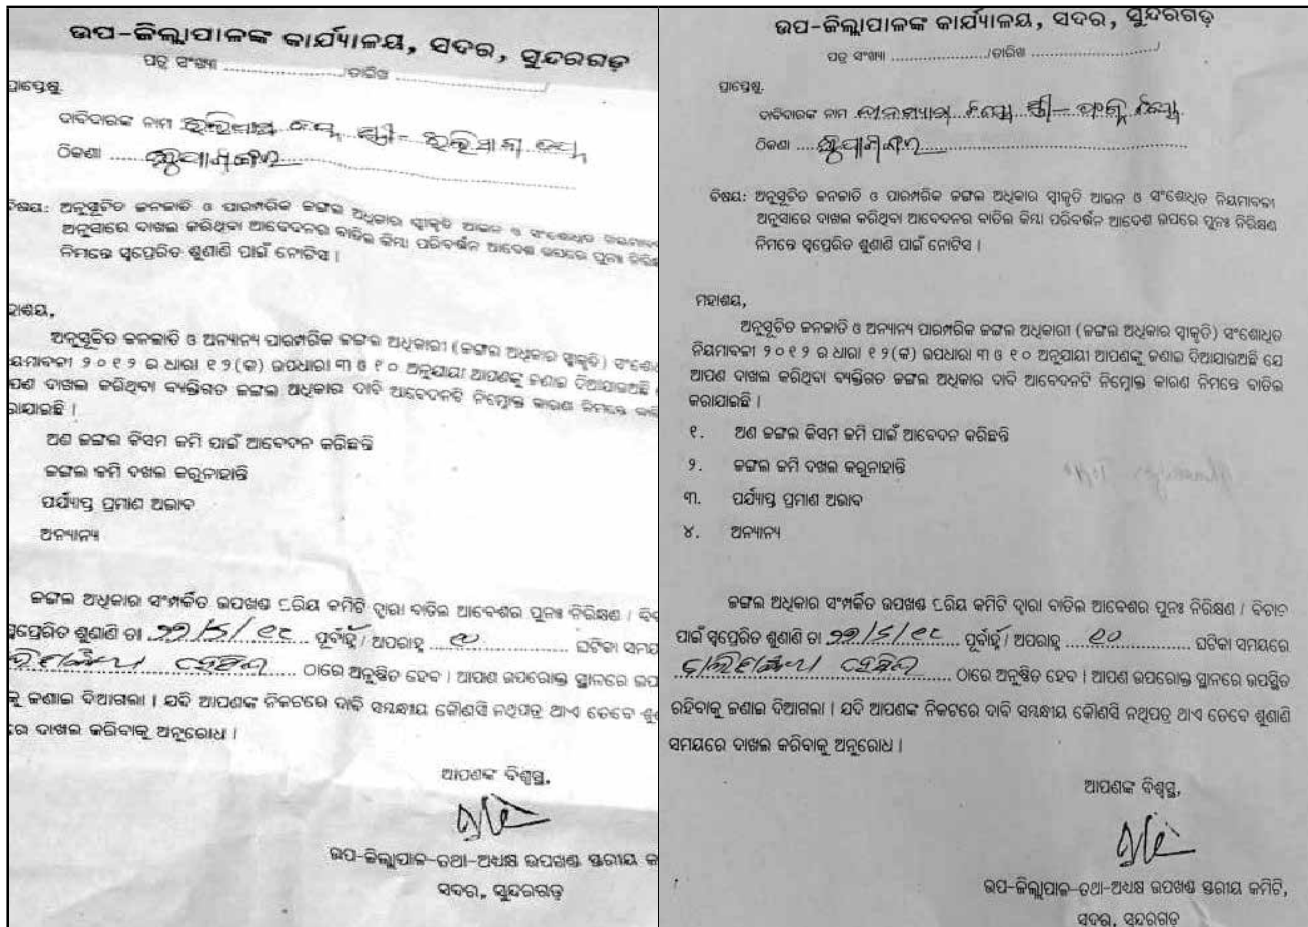 ଉପ-ଜିଲ୍ଲାପାଳଙ୍କ କାର୍ଯ୍ୟାଳୟ, ସଦର, ସୁନ୍ଦରଗଡ଼
ପତ୍ର ସଂଖ୍ୟା ...................../ତାରିଖ ............................/
ପ୍ରାପ୍ତେଷୁ.
ଦାବିଦାରଙ୍କ ନାମ
ଠିକଣା
ବିଷୟ: ଅନୁସୂଚିତ ଜନଜାତି ଓ ପାରମ୍ପରିକ ଜଙ୍ଗଲ ଅଧିକାର ସ୍ୱୀକୃତି ଆଇନ ଓ ସଂଶୋଧିତ ନିୟମାବଳୀ
ଅନୁସାରେ ଦାଖଲ କରିଥିବା ଆବେଦନର ବାତିଲ କିମ୍ବା ପରିବର୍ଦ୍ଧନ ଆଦେଶ ଉପରେ ପୁନଃ ନିରିକ୍ଷଣ
ନିମନ୍ତେ ସ୍ୱପ୍ରେରିତ ଶୁଣାଣି ପାଇଁ ନୋଟିସ ।
ହାଶୟ,
ଅନୁସୂଚିତ ଜନଜାତି ଓ ଅନ୍ୟାନ୍ୟ ପାରମ୍ପରିକ ଜଙ୍ଗଲ ଅଧିକାରୀ (ଜଙ୍ଗଲ ଅଧିକାର ସ୍ୱୀକୃତି) ସଂଶୋଧ
ୟମାବଳୀ ୨୦୧୨ ର ଧାରା ୧୨(କ) ଉପଧାରା ୩ ଓ ୧୦ ଅନୁଯାୟୀ ଆପଣଙ୍କୁ ଜଣାଇ ଦିଆଯାଉଅଛି
ପଣ ଦାଖଲ କରିଥିବା ବ୍ୟକ୍ତିଗତ ଜଙ୍ଗଲ ଅଧିକାର ଦାବି ଆବେଦନଟି ନିମ୍ନୋକ୍ତ କାରଣ ନିମନ୍ତେ ବାତି
ରାଯାଇଛି ।
ଅଣ ଜଙ୍ଗଲ କିସମ ଜମି ପାଇଁ ଆବେଦନ କରିଛନ୍ତି
ଜଙ୍ଗଲ ଜମି ଦଖଲ କରୁନାହାନ୍ତି
ପର୍ଯ୍ୟାପ୍ତ ପ୍ରମାଣ ଅଭାବ
ଅନ୍ୟାନ୍ୟ
ଜଙ୍ଗଲ ଅଧିକାର ସଂପର୍କିତ ଉପଖଣ୍ଡ ସ୍ତରିୟ କମିଟି ଦ୍ୱାରା ବାତିଲ ଆଦେଶର ପୁନଃ ନିରିକ୍ଷଣ / ବିଚ
ସ୍ୱପ୍ରେରିତ ଶୁଣାଣି ତା ୨୨/୫/୧୮ ପୂର୍ବାହ୍ନ / ଅପରାହ୍ନ ୧୦ ଘଟିକା ସମୟ
ଠାରେ ଅନୁଷ୍ଠିତ ହେବ । ଆପଣ ଉପରୋକ୍ତ ସ୍ଥାନରେ ଉପ
କୁ ଜଣାଇ ଦିଆଗଲା । ଯଦି ଆପଣଙ୍କ ନିକଟରେ ଦାବି ସମ୍ବନ୍ଧୀୟ କୌଣସି ନଥିପତ୍ର ଥାଏ ତେବେ ଶୁଣ
ରେ ଦାଖଲ କରିବାକୁ ଅନୁରୋଧ ।
ଆପଣଙ୍କ ବିଶ୍ୱସ୍ତ,
ଉପ-ଜିଲ୍ଲାପାଳ-ତଥା-ଅଧ୍ୟକ୍ଷ ଉପଖଣ୍ଡ ସ୍ତରୀୟ କ
ସଦର, ସୁନ୍ଦରଗଡ଼
ଉପ-ଜିଲ୍ଲାପାଳଙ୍କ କାର୍ଯ୍ୟାଳୟ, ସଦର, ସୁନ୍ଦରଗଡ଼
ପତ୍ର ସଂଖ୍ୟା ...................../ତାରିଖ ............................/
ପ୍ରାପ୍ତେଷୁ.
ଦାବିଦାରଙ୍କ ନାମ
ଠିକଣା
ବିଷୟ: ଅନୁସୂଚିତ ଜନଜାତି ଓ ପାରମ୍ପରିକ ଜଙ୍ଗଲ ଅଧିକାର ସ୍ୱୀକୃତି ଆଇନ ଓ ସଂଶୋଧିତ ନିୟମାବଳୀ
ଅନୁସାରେ ଦାଖଲ କରିଥିବା ଆବେଦନର ବାତିଲ କିମ୍ବା ପରିବର୍ଦ୍ଧନ ଆଦେଶ ଉପରେ ପୁନଃ ନିରିକ୍ଷଣ
ନିମନ୍ତେ ସ୍ୱପ୍ରେରିତ ଶୁଣାଣି ପାଇଁ ନୋଟିସ ।
ମହାଶୟ,
ଅନୁସୂଚିତ ଜନଜାତି ଓ ଅନ୍ୟାନ୍ୟ ପାରମ୍ପରିକ ଜଙ୍ଗଲ ଅଧିକାରୀ (ଜଙ୍ଗଲ ଅଧିକାର ସ୍ୱୀକୃତି) ସଂଶୋଧିତ
ନିୟମାବଳୀ ୨୦୧୨ ର ଧାରା ୧୨(କ) ଉପଧାରା ୩ ଓ ୧୦ ଅନୁଯାୟୀ ଆପଣଙ୍କୁ ଜଣାଇ ଦିଆଯାଉଅଛି ଯେ
ଆପଣ ଦାଖଲ କରିଥିବା ବ୍ୟକ୍ତିଗତ ଜଙ୍ଗଲ ଅଧିକାର ଦାବି ଆବେଦନଟି ନିମ୍ନୋକ୍ତ କାରଣ ନିମନ୍ତେ ବାତିଲ
କରାଯାଇଛି ।
୧. ଅଣ ଜଙ୍ଗଲ କିସମ ଜମି ପାଇଁ ଆବେଦନ କରିଛନ୍ତି
୨. ଜଙ୍ଗଲ ଜମି ଦଖଲ କରୁନାହାନ୍ତି
୩. ପର୍ଯ୍ୟାପ୍ତ ପ୍ରମାଣ ଅଭାବ
୪. ଅନ୍ୟାନ୍ୟ
ଜଙ୍ଗଲ ଅଧିକାର ସଂପର୍କିତ ଉପଖଣ୍ଡ ସ୍ତରିୟ କମିଟି ଦ୍ୱାରା ବାତିଲ ଆଦେଶର ପୁନଃ ନିରିକ୍ଷଣ / ବିଚାର
ପାଇଁ ସ୍ୱପ୍ରେରିତ ଶୁଣାଣି ତା ୨୨/୫/୧୮ ପୂର୍ବାହ୍ନ / ଅପରାହ୍ନ ୧୦ ଘଟିକା ସମୟରେ
ଠାରେ ଅନୁଷ୍ଠିତ ହେବ । ଆପଣ ଉପରୋକ୍ତ ସ୍ଥାନରେ ଉପସ୍ଥିତ
ରହିବାକୁ ଜଣାଇ ଦିଆଗଲା । ଯଦି ଆପଣଙ୍କ ନିକଟରେ ଦାବି ସମ୍ବନ୍ଧୀୟ କୌଣସି ନଥିପତ୍ର ଥାଏ ତେବେ ଶୁଣାଣି
ସମୟରେ ଦାଖଲ କରିବାକୁ ଅନୁରୋଧ ।
ଆପଣଙ୍କ ବିଶ୍ୱସ୍ତ,
ଉପ-ଜିଲ୍ଲାପାଳ-ତଥା-ଅଧ୍ୟକ୍ଷ ଉପଖଣ୍ଡ ସ୍ତରୀୟ କମିଟି,
ସଦର, ସୁନ୍ଦରଗଡ଼